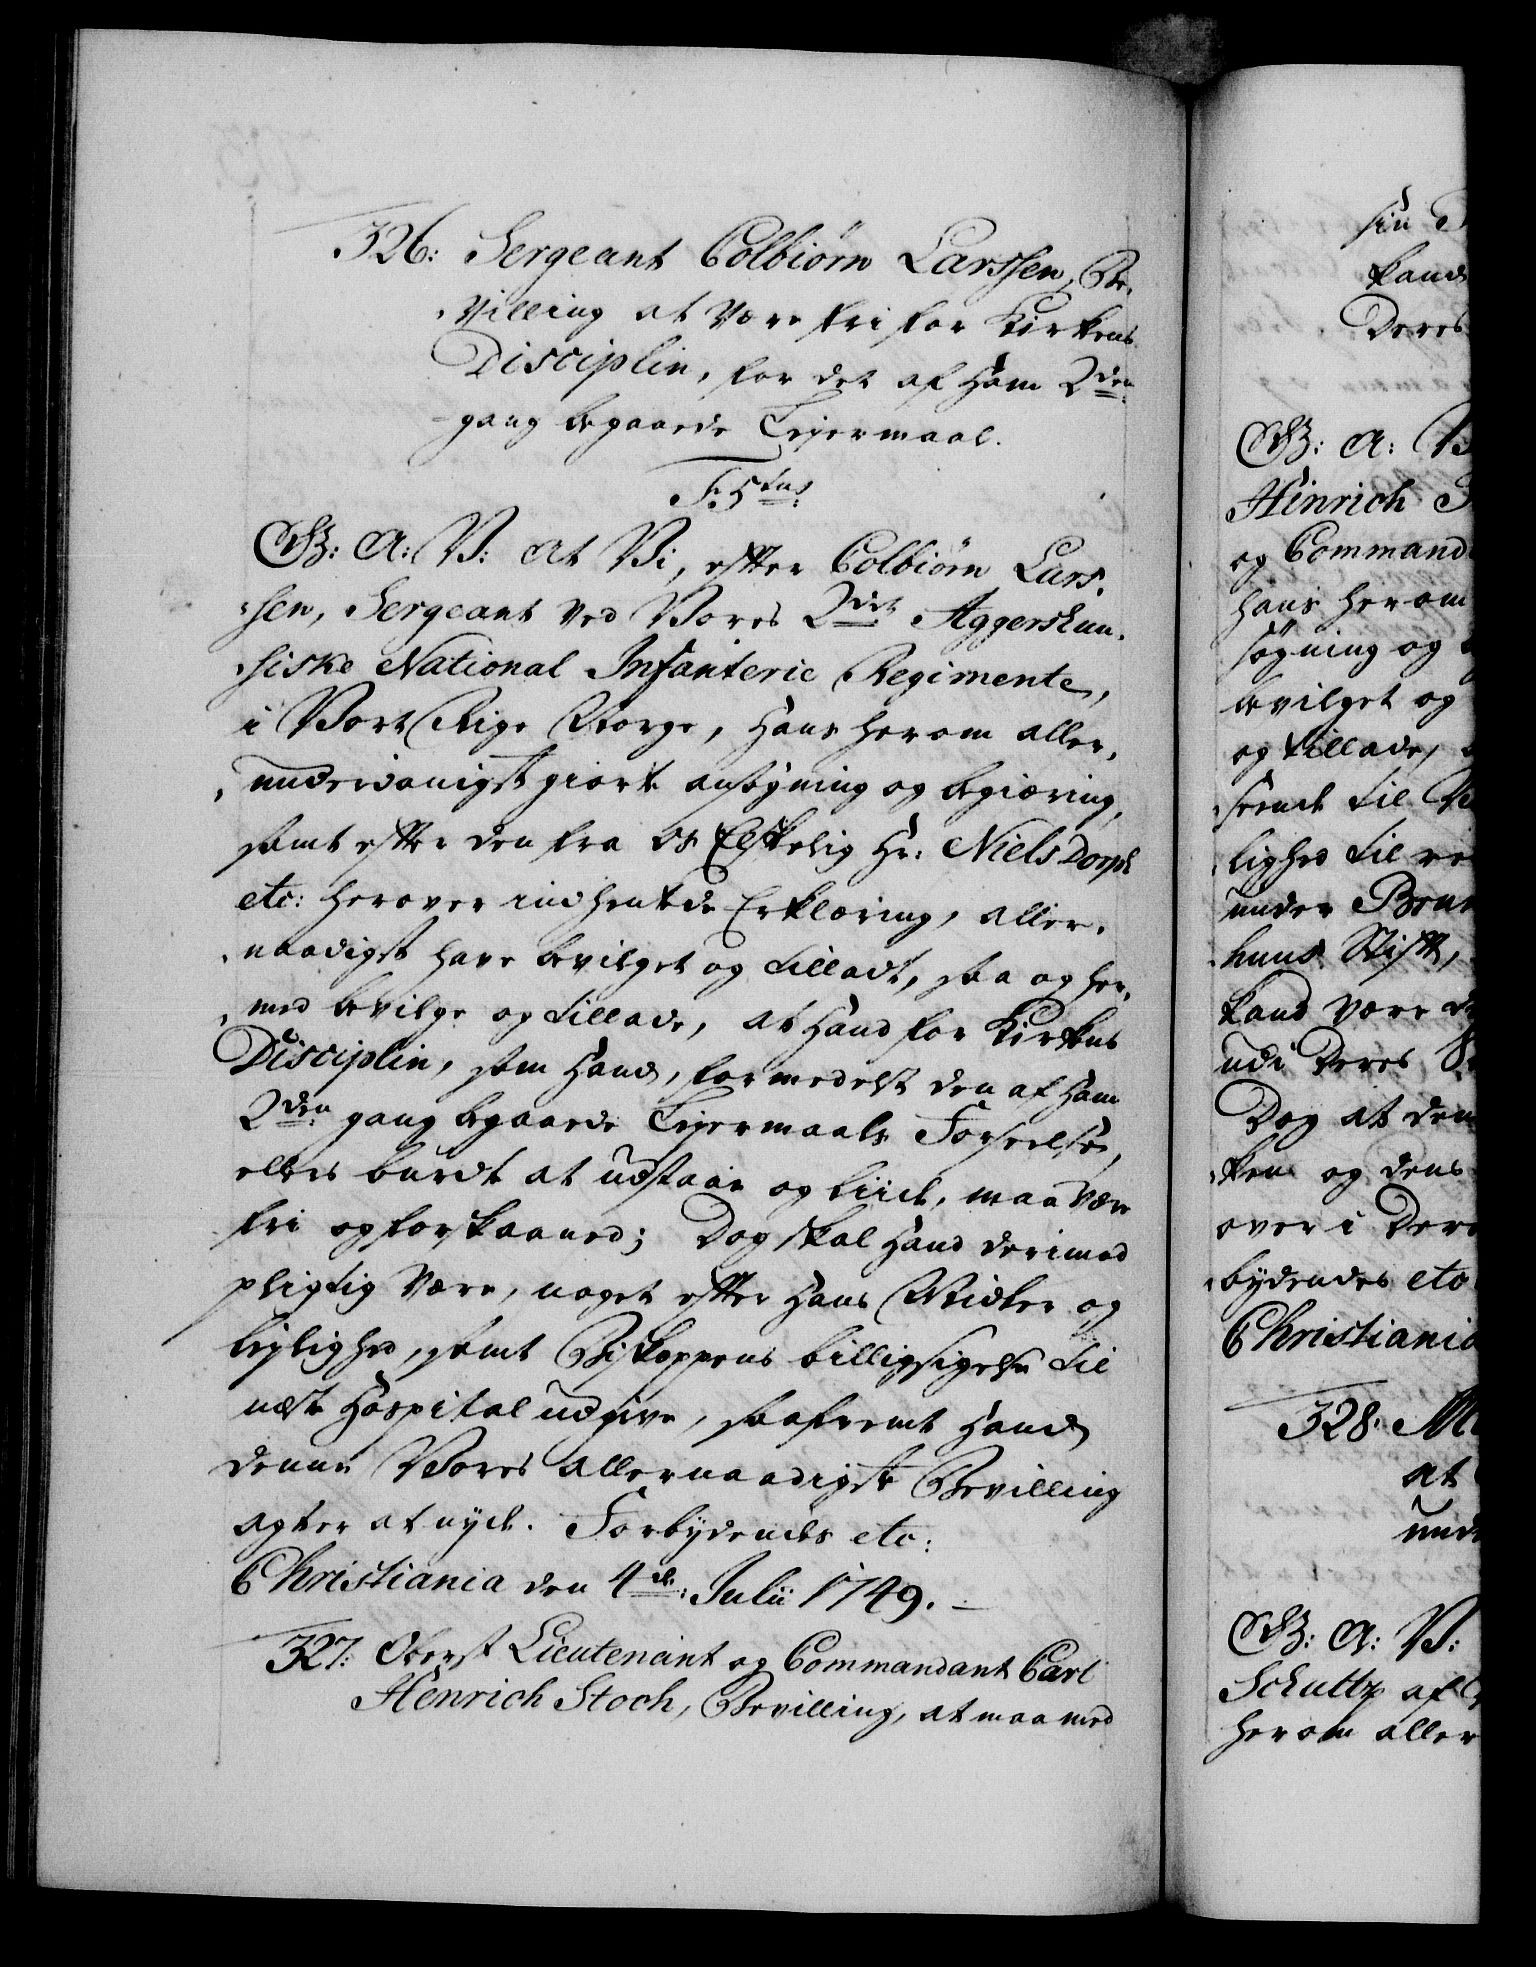 326: Sergeant Colbiørn Larssen, Be-
villing at være fri for Kirkens
Disciplin, for det af ham 2den
gang begaaede Leyermaal.
F. 5tus
G: A: V: at Vi, efter Colbiørn Lars-
sen, Sergeant ved Vores 2det Aggershuu-
siske National Infanterie Regimente,
i Vort Rige Norge, hans herom aller-
underdanigst giorte ansøgning og begiæring,
samt efter den fra Os Elskelig Hr: Niels Dorph
etc: herover indhentede Erklæring, aller-
naadigst have bevilget og tilladt, saa og her-
med bevilge og tillade, at hand for Kirkens
Disciplin, som hand, formedelst den af ham
2den gang begaaede Leyermaals Forseelse,
ellers burde at udstaae og liide, maa være
fri og forskaaned; Dog skal hand derimod
pligtig være, noget efter hans Midler og
leylighed, samt Biskoppens billigsigelse til
næste Hospital udgive, saafremt hand
denne Vores allernaadigste Bevilling
agter at nyde. Forbydendes etc:
Christiania den 4de Julii 1749.
327: Oberst Lieutenant og Commandant Carl
Henrich Stoch, Bevilling, at maa med
sin
kand
Deres
G: A: V
Hinrich
og Command
hans herom
søgning og
bevilget og
og tillade,
stende til
lighed til
under
huus Stift,
kand være
udi Deres
Dog at den
ken og dens
over i Dere
bydendes etc
Christiania
328. M
at
und
G: A: V:
Schultz af
herom aller